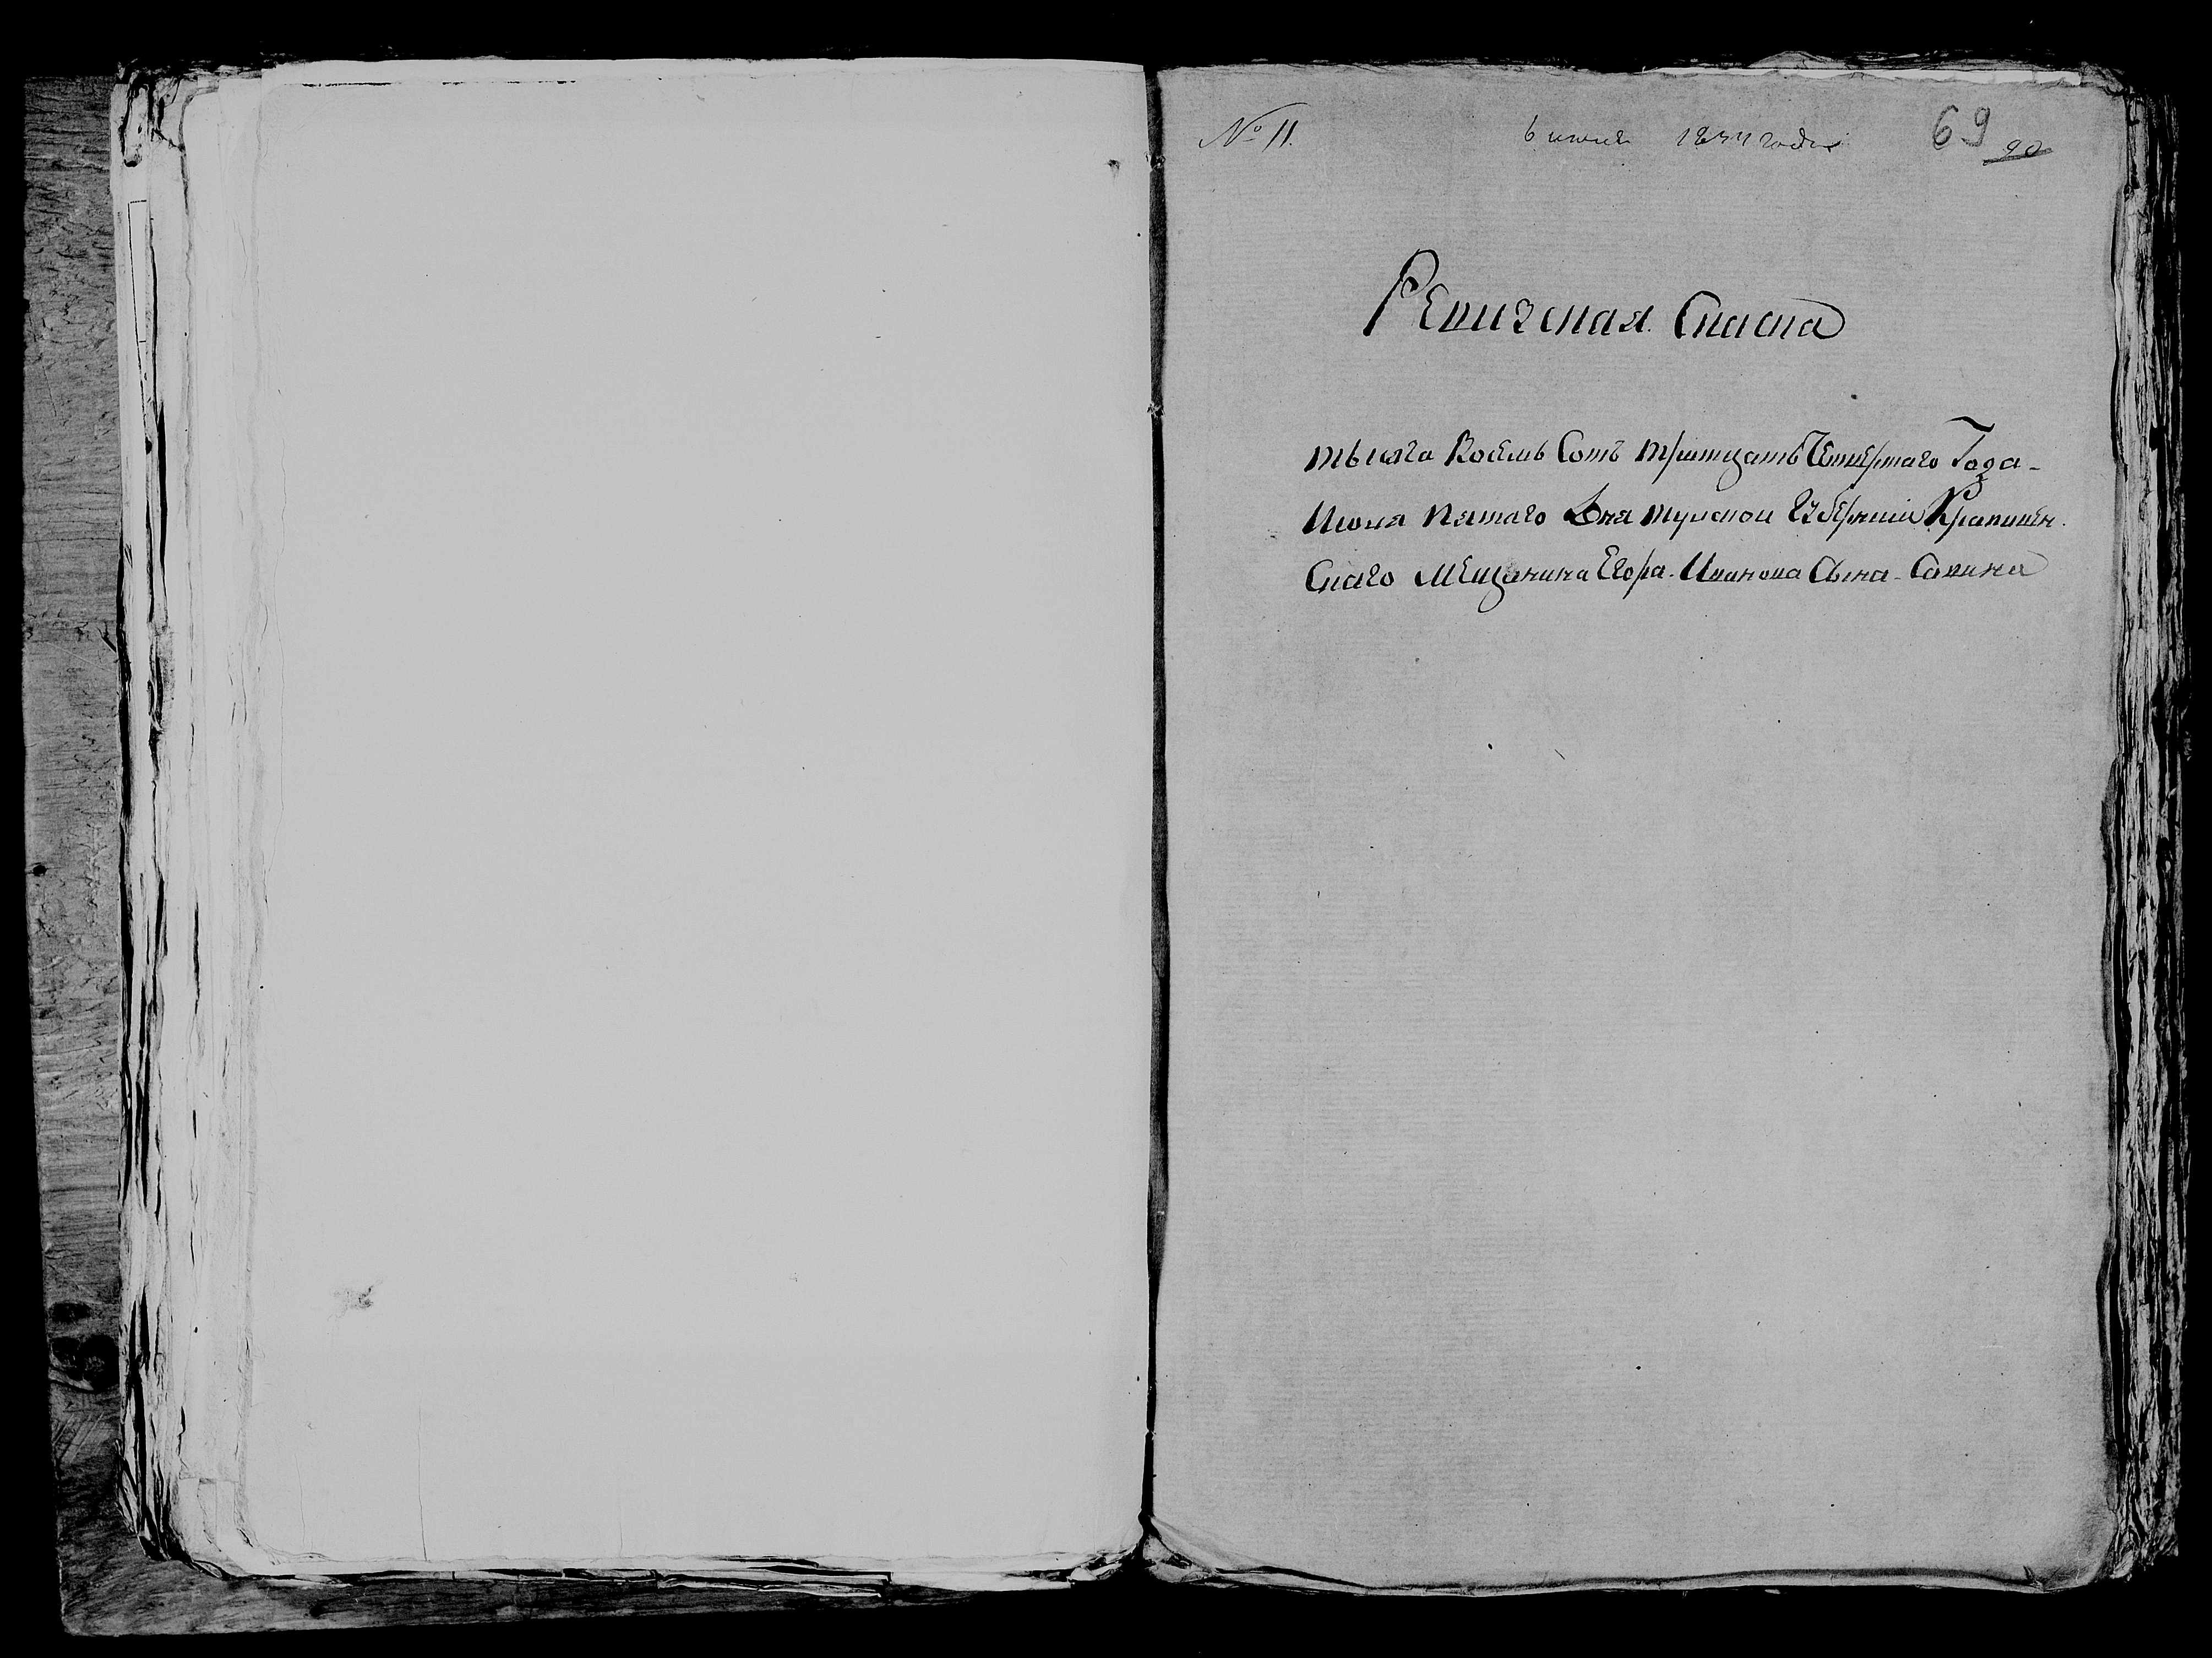 № 11. 6 июня 1834 года 69 90
Ревизская Сказка
тысяча Восемь Сотъ тритцать Четвертаго Года -
Июня пятаго Дня тульской Губернии Крапивен
Скаго Мещанина Егора Иванова Сына Савина